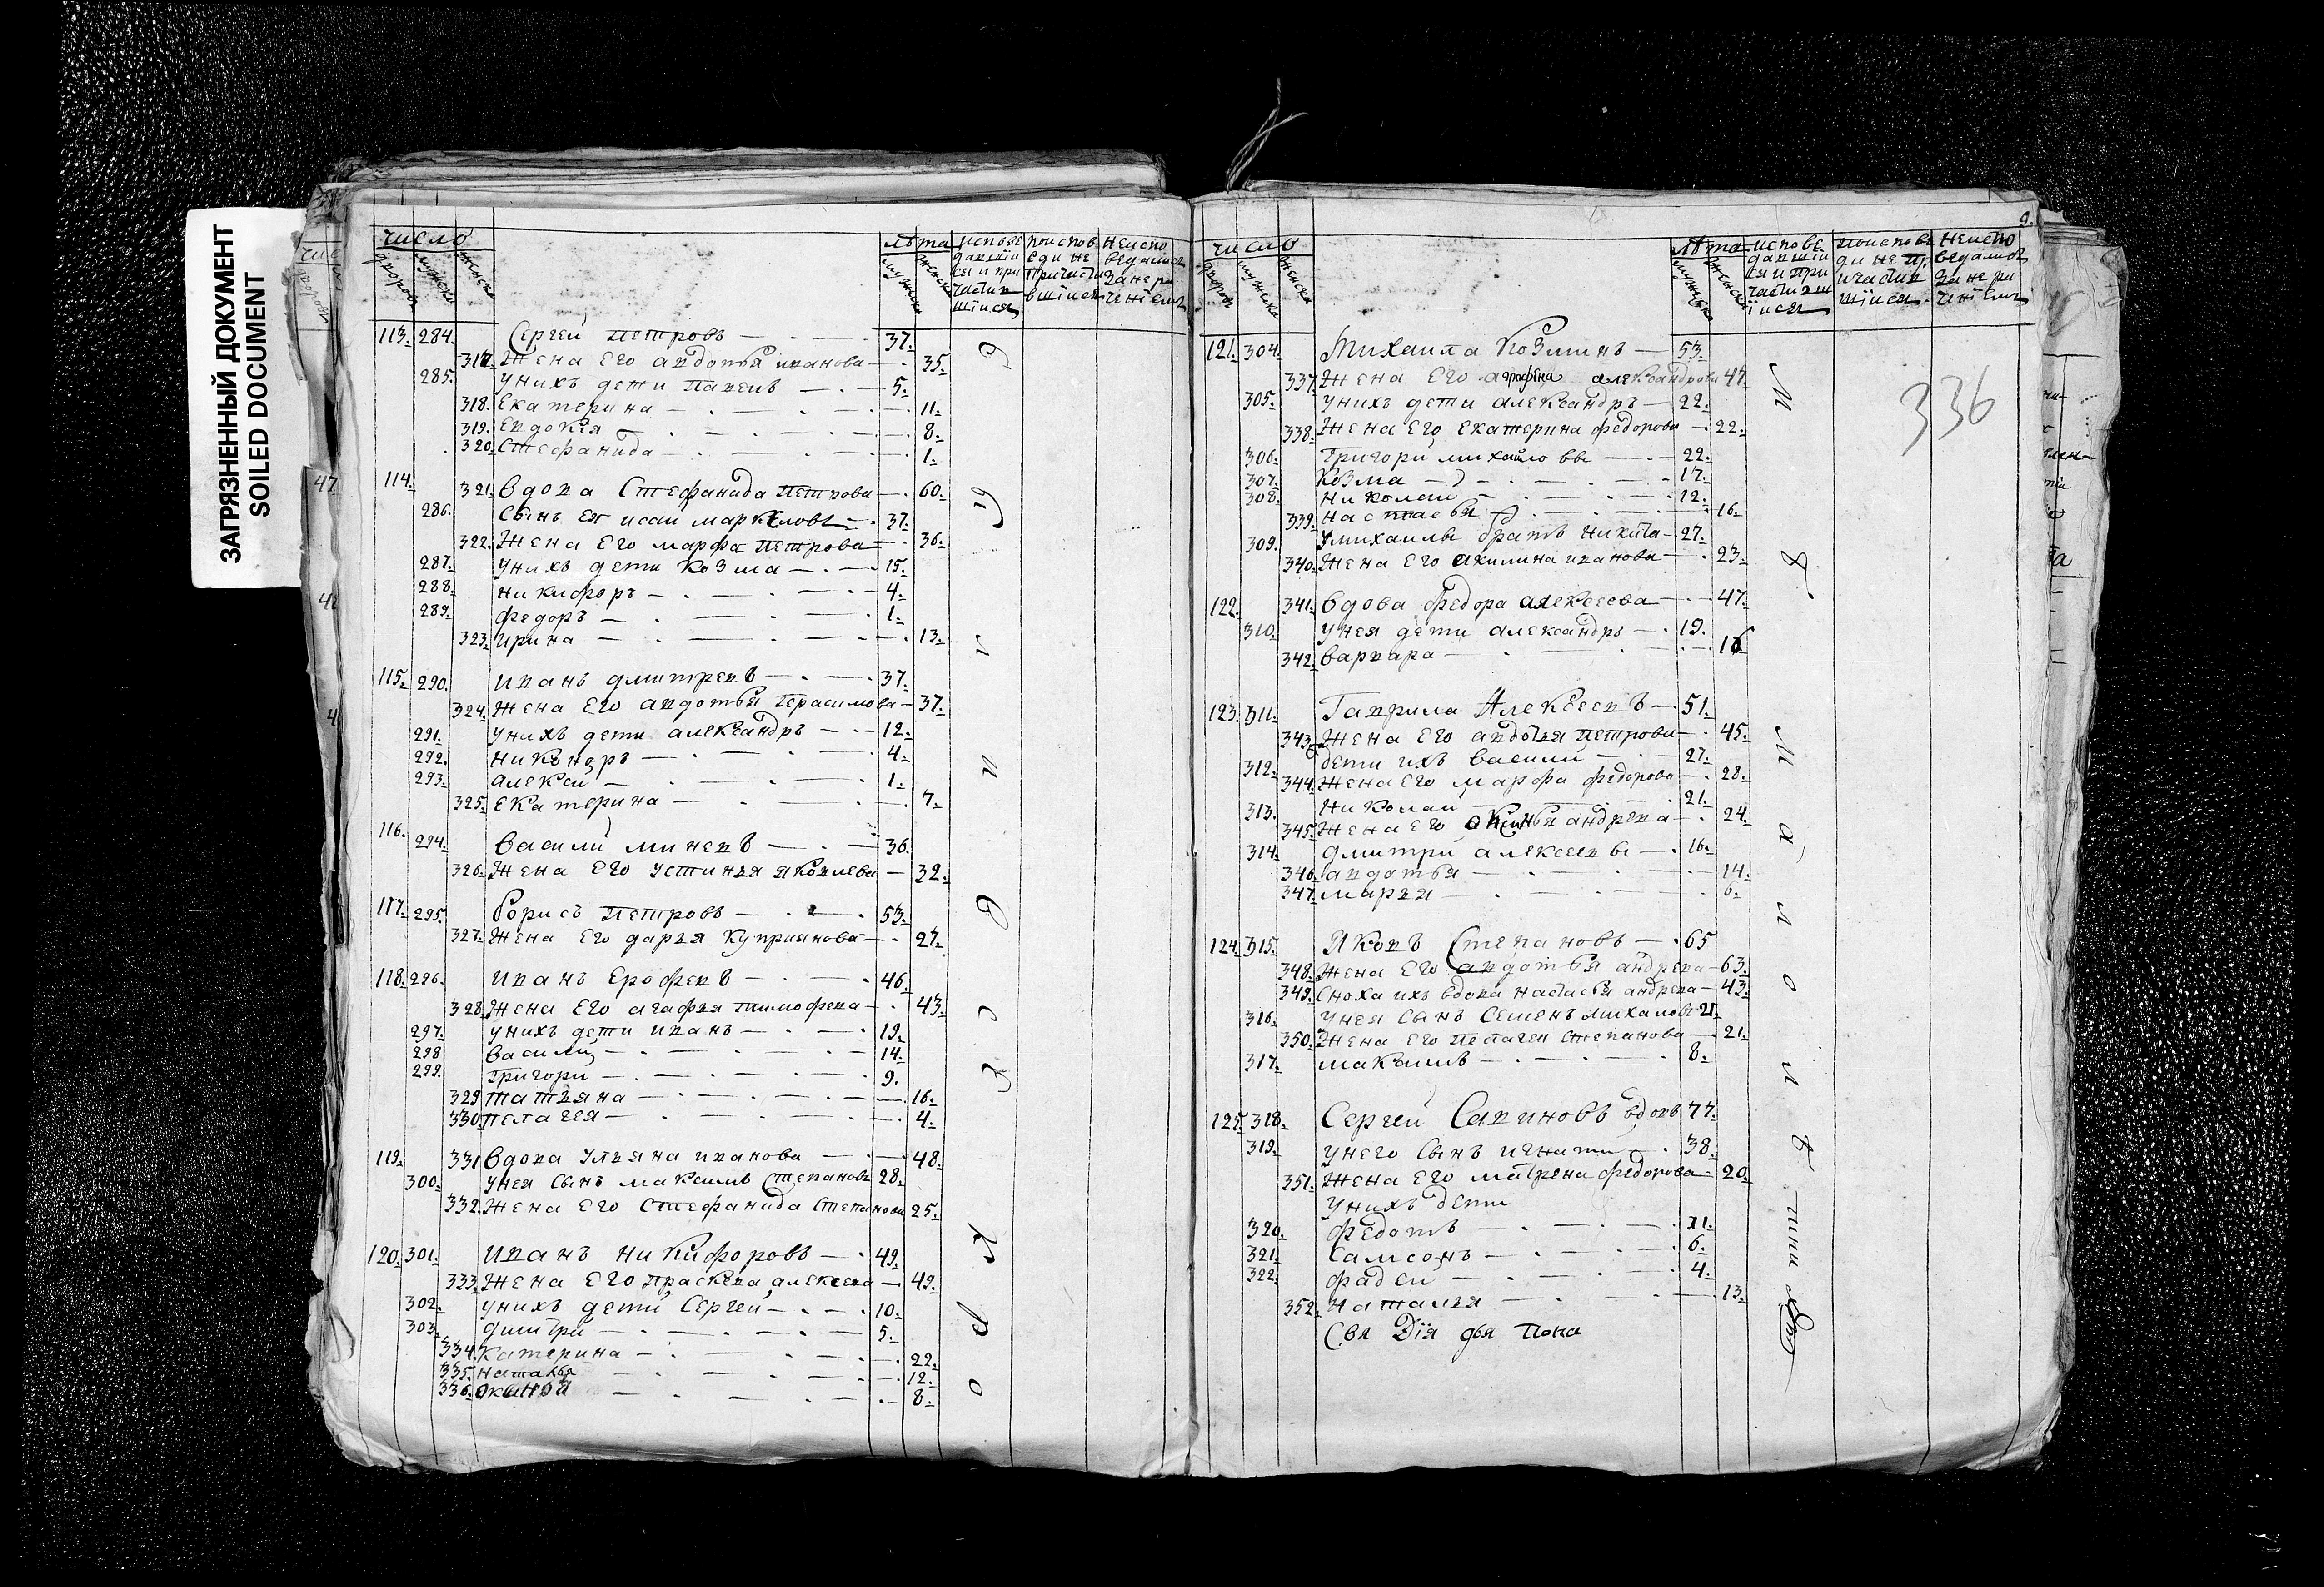 ЗАГРЯЗНЕННЫЙ ДОКУМЕНТ
SOILED DOCUMENT
число лѣта
дворовъ мужеска женска мужеска женска
113. 284. Сергей петровъ 37.
317. Жена Его авдотья иванова 35.
285. унихъ дети павелъ 5.
318. Екатерина 11.
319. Евдокія 8.
320. Стефанида 1.
114. 321. вдова Стефанида петрова 60.
286. сынъ ея исаи маркѣловъ 37.
322. Жена Его марфа петрова 36.
287. унихъ дети козма 15.
288. никифоръ 4.
289. федоръ 1.
323. ирина 13.
115. 290. иванъ дмитревъ 37.
324. Жена Его авдотья герасимова 37.
291. унихъ дети александръ 12.
292. никоноръ 4.
293. алексей 1.
325. Екатерина 7.
116. 294. васили минеевъ 36.
326. Жена Его устинья яковлева 32.
117. 295. Борисъ петровъ 53.
327. Жена Его дарья куприянова 27.
118. 296. иванъ Ерофеевъ 46.
328. Жена Его агафья тимофева 43.
297. унихъ дети иванъ 19.
298 василиі 14.
299. григори 9.
329 татьяна 16.
330. пелагея 4.
119. 331 вдова ульяна иванова 48.
300. унея сынъ максимъ степановъ 28.
332. Жена Его стефанида степанова 25.
120. 301. иванъ никифоровъ 49.
333. Жена Его праскева алексева 49.
302. унихъ дети сергей 10.
303. дмитри 5.
334. катерина 22.
335. наталья 12.
336. 8.
9.
число лѣта
дворовъ мужеска женска мужеска женска
336
121. 304. Михаила Козминъ 53.
337. Жена Его аграфена александрова 47.
305. унихъ дети александръ 22.
338. Жена Его Екатерина федорова 22.
306. григори михайловы 22.
307. козма 17.
308. николаи 12.
339. настасья 16.
309. умихаилы братъ никита 27.
340. Жена Его акилина иванова 23.
122. 341. вдова федора алексеева 47.
310. унея дети александръ 19.
342. варвара
123. 311. Гаврила Алексеевъ 51.
343. Жена Его авдотья петрова 45.
312. дети ихъ василий 27.
344. Жена Его марфа федорова 28.
313. николаи 21.
345. Жена Его андрева 24.
314. дмитри алексеевы 16.
346. авдотья 14.
347. марья 6.
124. 315. Яковъ Степановъ 65
348. Жена Его авдотья андрева 63.
349. сноха ихъ вдова настасья андрева 43.
316. унея сынъ семенъ михаловъ 21.
350. Жена Его пелагея степанова 21.
317. максимъ 8.
125. 318. Сергей Савиновъ вдовъ 77.
319. унего сынъ игнати 38.
351. Жена Его матрена федорова 20.
унихъ дети
320. федотъ 11.
321. самсонъ 6.
322. фадеи 4.
352. наталья 13.